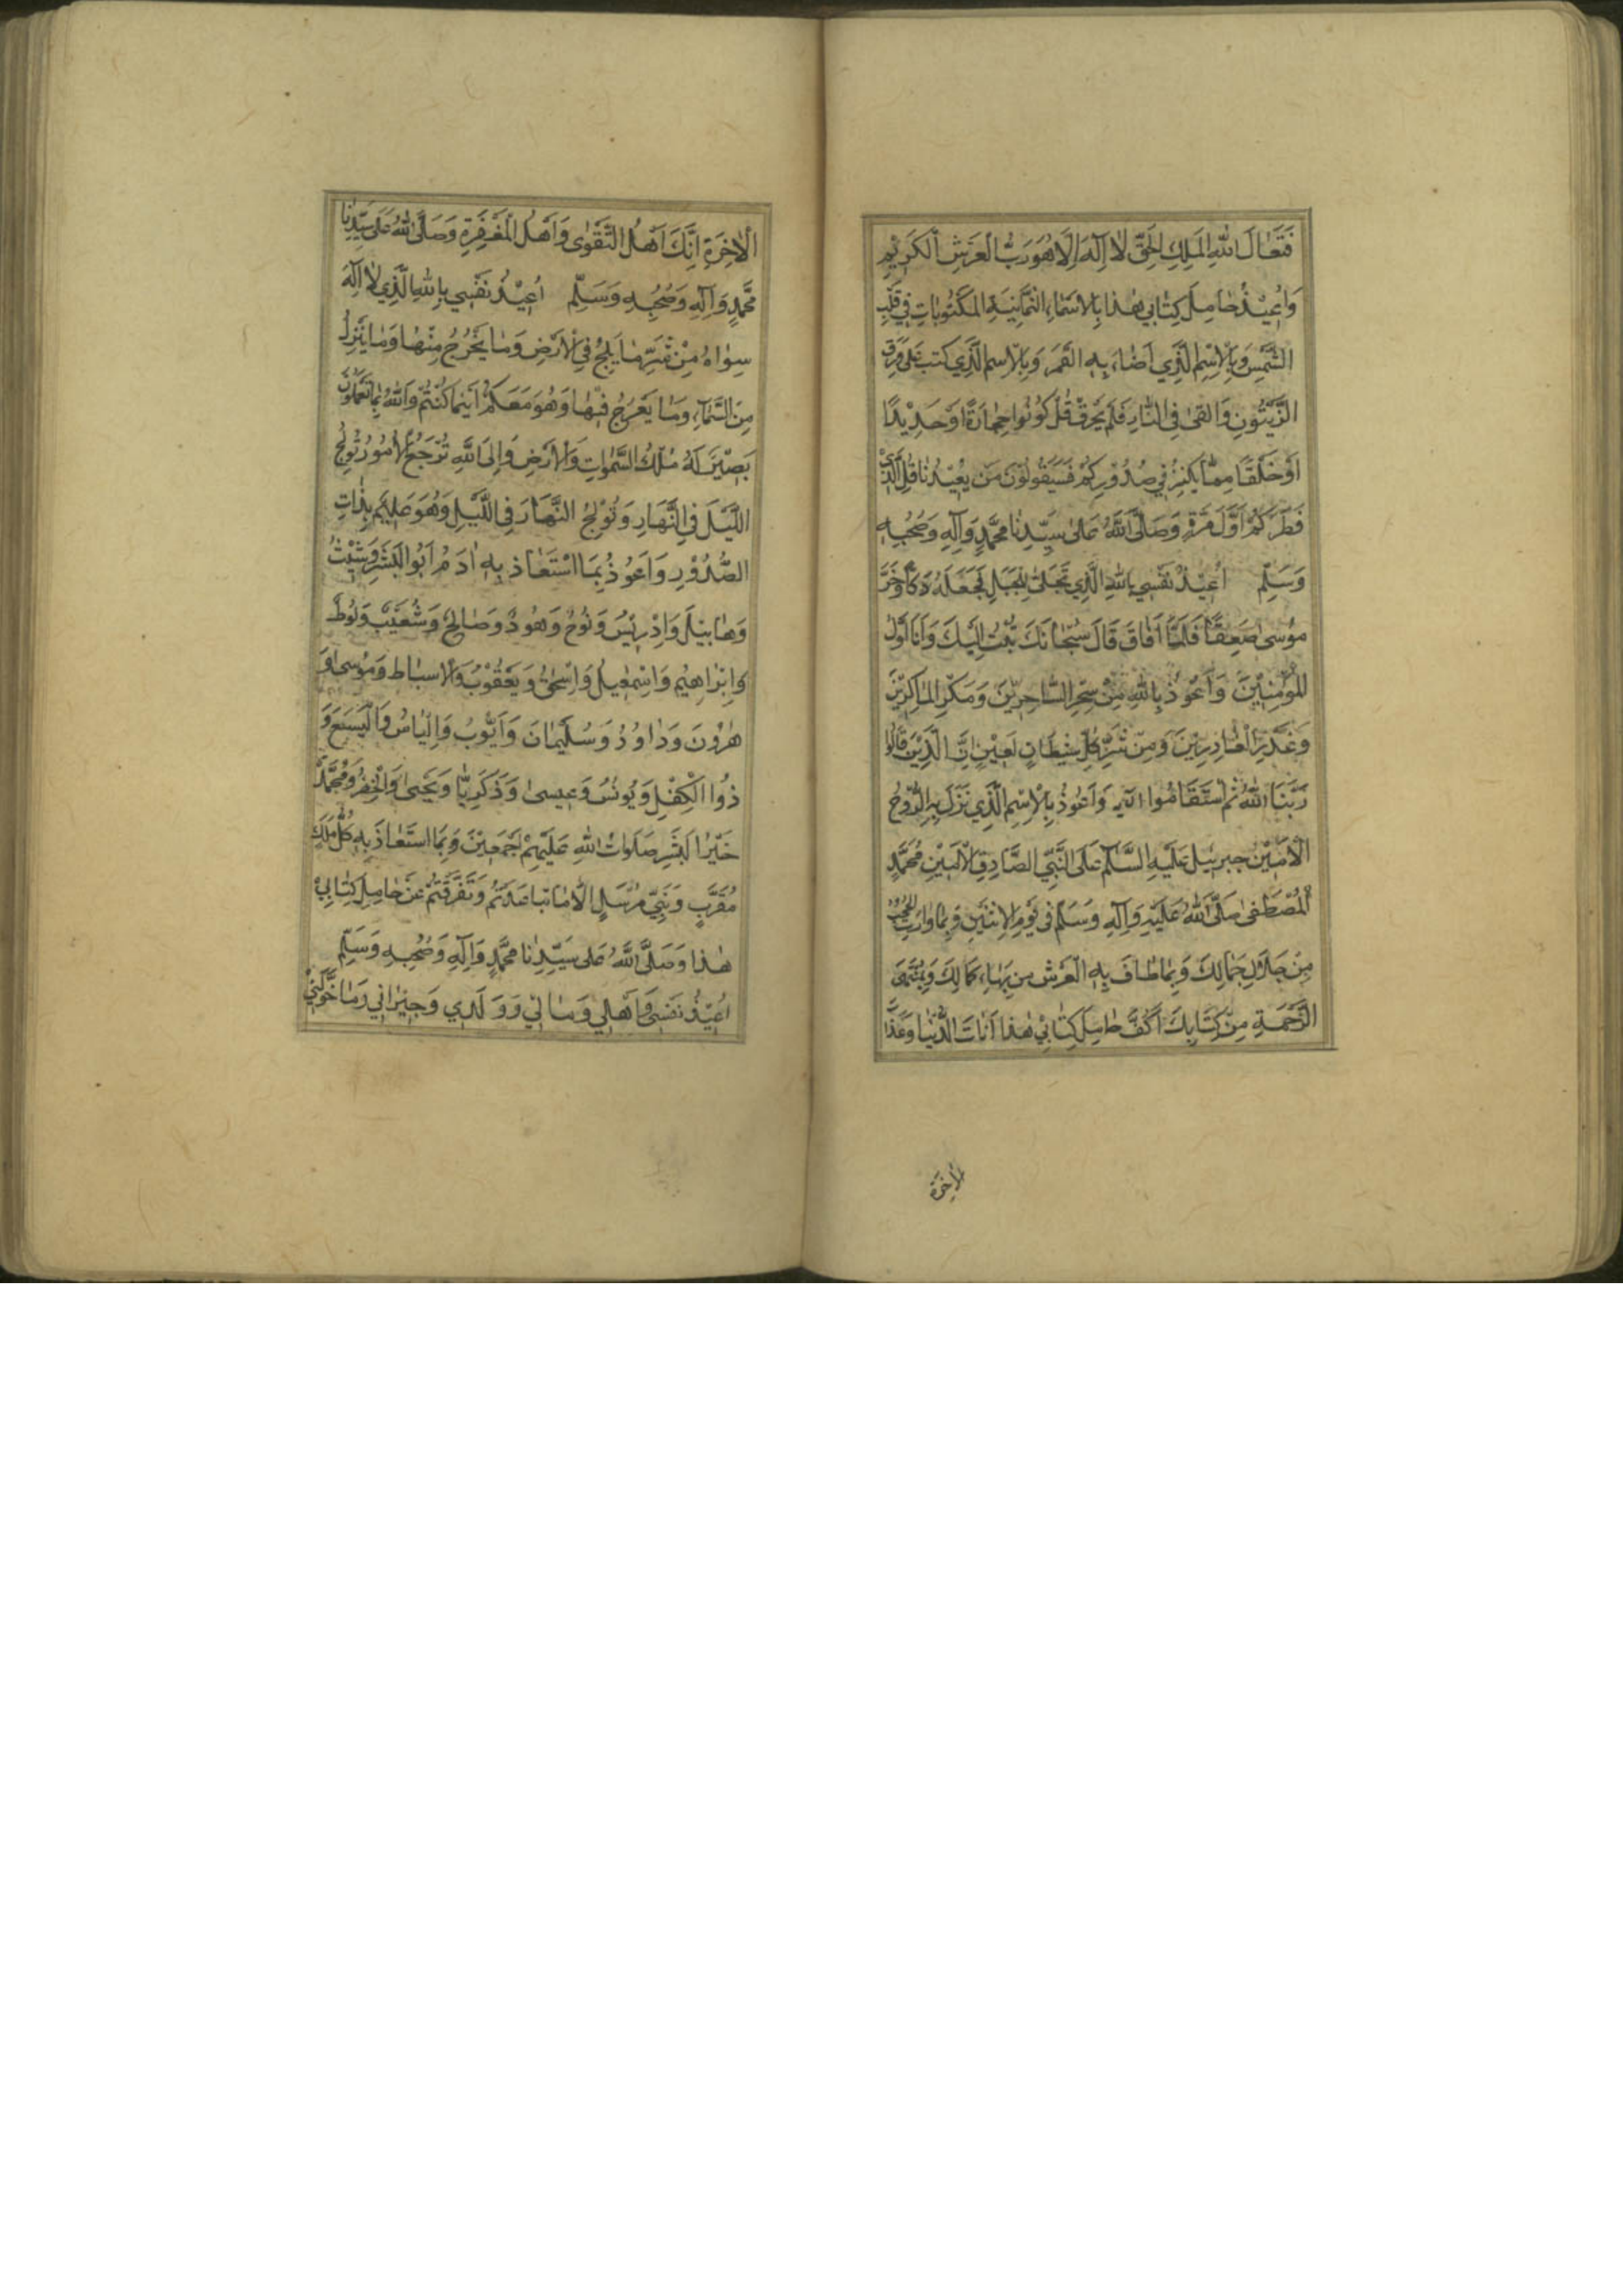 فَتَعَالَ اللّٰهِ المَلِكِ الحَقِّ لَا اِلٰهَ اِلَّا هُوَ رَبُّ الْعَرْشِ الْكَرِيْمِ
وَاُعِيْذُ حَامِلَ كِتَابِي هٰذَا بِالاَسْمَاءِ الثَّمَانِيَةِ المَكْتُوبَاتِ فِي قَلْبِ
الشَّمْسِ وَبِالْاِسْمِ الَّذِي اَضَاءَ بِهِ القَمَرَ وَبِالْاِسمِ الَّذِي كتب عَلَى وَرَقِ
الزَّيْتُونِ وَالقىٰ فِي النَّارِ فَلَمْ يَحْرِقْ قُلْ كُونُوا حِجَارَةً اَوْ حَدِيْدًا
اَوْ خَلْقًا مِمَّا يَكْبُرُ فِي صُدُوْرِكُمْ فَسَيَقُولُوْنَ مَن يُعِيْدُنَا قُلِ الَّذِيْ
فَطَرَكُمْ اَوَّلَ مَرَّةٍ وَصَلَّى اللّٰهُ عَلىٰ سَيِّدِنَا مُحَمَّدٍ وَآلِهِ وَصَحْبِهِ
وَسَلِّم اُعِيْذُ نَفْسِي بِاللّٰهِ الَّذِي تَجَلّىٰ لِلْجَبَلِ فَجَعَلَهُ دَكًّا وَخَرَّ
مُوْسىٰ صَعِقًا فَلَمَّا اَفَاقَ قَالَ سُبْحَانَكَ تُبْتُ اِلَيْكَ وَاَنَا اَوَّلُ
المُؤْمِنِيْنَ وَاَعُوْذُ بِاللّٰهِ مِنْ سِحْرِ السَّاحِرِيْنَ وَمَكْرِ المَاكِرِيْنَ
وَغَدْرِ الْغَادِرِيْنَ وَمِنْ شَرِّ كُلِّ شَيْطَانٍ لَعِيْنٍ اِنَّ الَّذِيْنَ قَالُوا
رَبُّنَا اللّٰهُ ثُمَّ اسْتَقَامُوا وَاَعُوذُ بِالْاِسْمِ الَّذِي نَزَلَ بِهِ الرُّوحُ
الْاَمِيْنُ جبرئيل عَلَيْهِ السَّلَامُ عَلَى النَّبِيِّ الصَّادِقِ الْاَمِيْنِ مُحَمَّدٍ
الْمُصْطَفىٰ صَلَّى اللّٰهُ عَلَيْهِ وَآلِهِ وَسَلَّمَ فِي يَوْمِ الاِثْنَيْنِ وَبِمَا وَارَتِ الْحُجُبُ
مِنْ جَلَالِ جَمَالِكَ وَبِمَا طَافَ بِهِ الْعَرْش مِن بَهَاءِ كَمَالِكَ وَبِمُنْتَهىٰ
الرَّحْمَةِ مِنْ كِتَابِكَ اَكُفَّ حَامِلَ كِتَابِيْ هٰذَا آفَاتَ الدُّنْيَا وَعَذَا
الآخِرَة
الْآخِرَةِ اِنَّكَ اَهْلُ التَّقْوٰى وَاَهْلُ الْمَغْفِرَةِ وَصَلَّى اللّٰهُ عَلى سَيِّدِنَا
مُحَمَّدٍ وَآلِهِ وَصَحْبِهِ وَسَلِّم اُعِيْذُ نَفْسِي بِاللّٰهِ الَّذِي لَا اِلٰهَ
سِوَاهُ مِنْ شَرِّ مَا يَلِجُ فِي الْاَرْضِ وَمَا يَخْرُجُ مِنْهَا وَمَا يَنْزِلُ
مِنَ السَّمَآءِ وَمَا يَعْرُجُ فِيْهَا وَهُوَ مَعَكُمْ اَيْنَمَا كُنْتُمْ وَاللّٰهُ بِمَا تَعْمَلُونَ
بَصِيْرٌ لَهُ مُلْكُ السَّمٰوَاتِ وَالْاَرْضِ وَاِلَى اللّٰهِ تُرْجَعُ الْاُمُورُ تُوْلِجُ
اللَّيْلَ فِي النَّهَارِ وَتُوْلِجُ النَّهَارَ فِي اللَّيْلِ وَهُوَ عَلِيْم بِذَاتِ
الصُّدُوْرِ وَاَعُوْذُ بِمَا اسْتَعَاذَ بِهِ اٰدَمُ اَبُو البَشَرِ وَشَيْثُ
وَهَابِيْلَ وَاِدْرِيْسُ وَنُوْحٌ وَهُوْدٌ وَصَالِحٌ وَشُعَيْبٌ وَلُوْطٌ
وَاِبْرَاهِيْمُ وَاِسْمٰعِيْلُ وَاِسْحٰقُ وَيَعْقُوْبُ وَالاَسبَاط وَمُوسىٰ وَ
هٰرُوْنَ وَدَاوُدُ وَسُلَيْمَانَ وَاَيُّوْبُ وَاِلْيَاسُ وَالْيَسَعَ وَ
ذُوا الْكِفْلِ وَيُونُسُ وَعِيسىٰ وَذَكَرِيَّا وَيَحْيىٰ وَالْخِضْرُ وَمُحَمَّدٌ
خَيْرُ البَشَرِ صَلَوَاتُ اللّٰهِ عَلَيْهِمْ اَجْمَعِيْنَ وَبِمَا اسْتَعَاذَ بِهِ كُلُّ مَلَكٍ
مُقَرَّبٍ وَنَبِيٍّ مُرْسَلٍ اِلَّا مَا تَبَاعَدْتُمْ وَتَفَرَّقْتُمْ عَنْ حَامِلِ كِتَابِيْ
هٰذَا وَصَلَّى اللّٰهُ عَلى سَيِّدِنَا مُحَمَّدٍ وَآلِهِ وَصَحْبِهِ وَسَلِّم
اُعِيْذُ نَفْسِيْ وَاَهْلِي وَمَالِي وَوَلَدِي وَجِيْرَانِي وَمَا خَوَّلَنِيْ